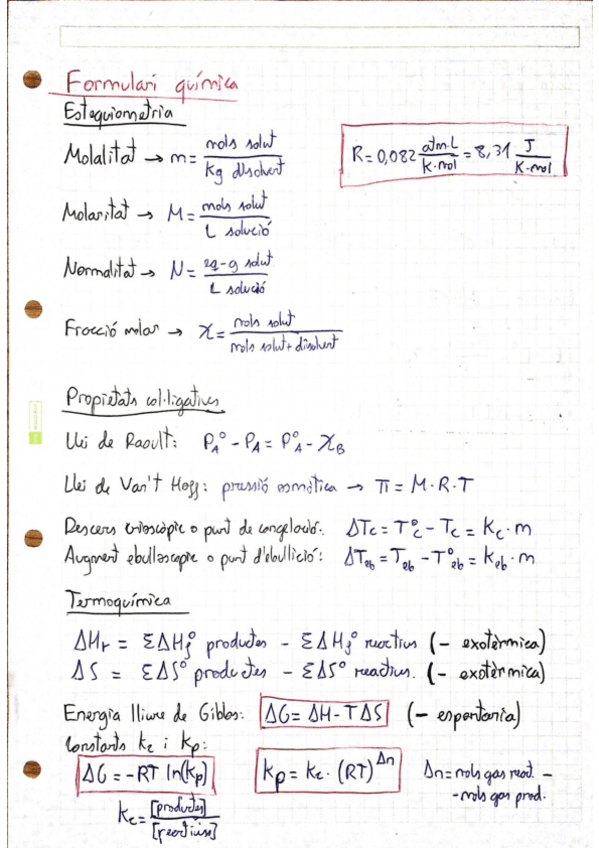 Formulari química
Estequiometria
Molalitat → m = mols solut / Kg dissolvent
R = 0,082 atm·L / K·mol = 8,31 J / K·mol
Molaritat → M = mols solut / L solució
Normalitat → N = eq-g solut / L solució
Fracció molar → χ = mols solut / mols solut + dissolvent
Propietats col·ligatives
Llei de Raoult: P_A° - P_A = P_A° - χ_B
Llei de Van't Hoff: pressió osmòtica → π = M·R·T
Descens crioscòpic o punt de congelació: ΔTc = T°c - Tc = Kc·m
Augment ebulloscopic o punt d'ebullició: ΔTeb = Teb - T°eb = Keb·m
Termoquímica
ΔHr = ΣΔHf° productes - ΣΔHf° reactius (- exotèrmica)
ΔS = ΣΔS° productes - ΣΔS° reactius. (- exotèrmica)
Energia lliure de Gibbs: ΔG = ΔH - TΔS (- espontania)
Constants Kc i Kp:
ΔG = -RT ln(Kp)
Kp = Kc·(RT)^Δn
Δn = mols gas react. -
- mols gas prod.
Kc = [productes] / [reactius]